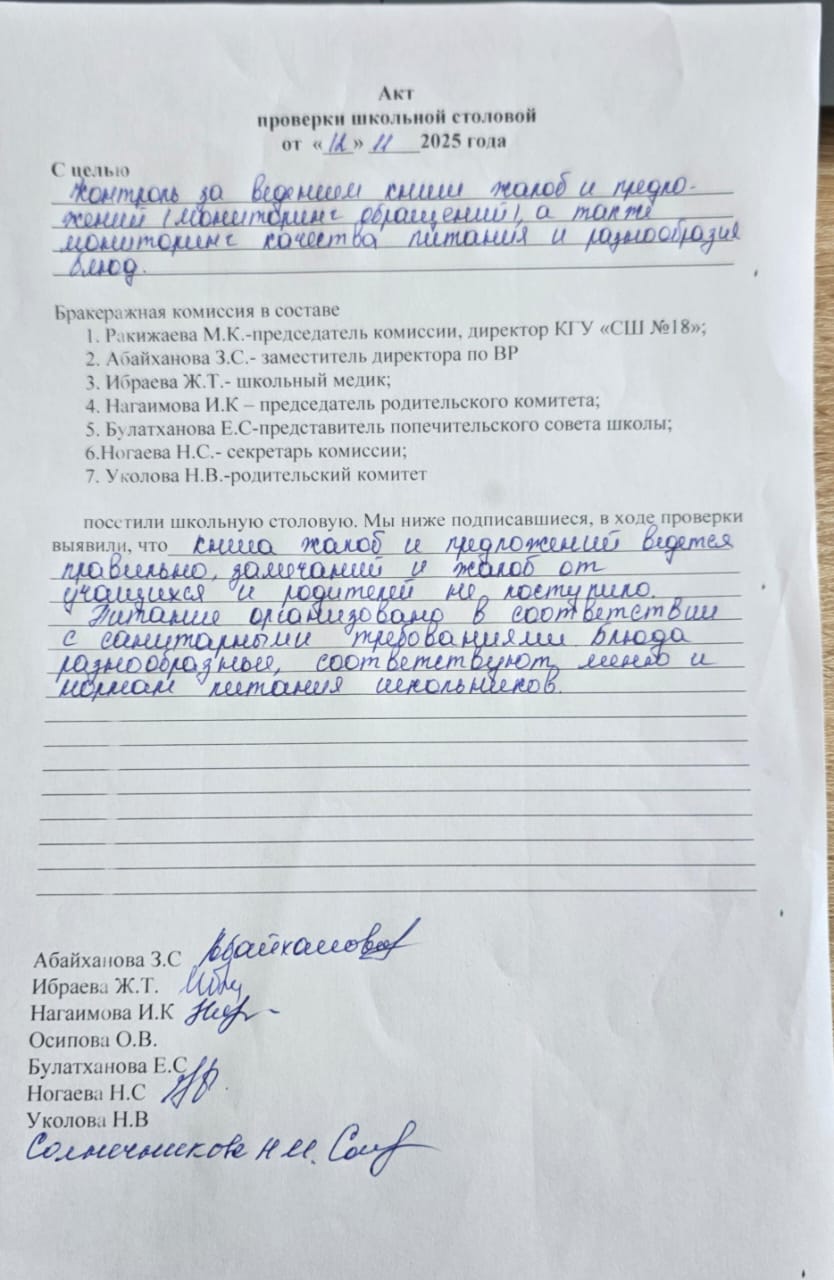 Акт
проверки школьной столовой
от «12» 11 2025 года
С целью
Контроль за ведением книги жалоб и предло-
жений (мониторинг обращений), а также
мониторинг качества питания и разнообразия
блюд.
Бракеражная комиссия в составе
1. Ракижаева М.К.-председатель комиссии, директор КГУ «СШ №18»;
2. Абайханова З.С.- заместитель директора по ВР
3. Ибраева Ж.Т.- школьный медик;
4. Нагаимова И.К – председатель родительского комитета;
5. Булатханова Е.С-представитель попечительского совета школы;
6.Ногаева Н.С.- секретарь комиссии;
7. Уколова Н.В.-родительский комитет
посетили школьную столовую. Мы ниже подписавшиеся, в ходе проверки
выявили, что книга жалоб и предложений ведется
правильно, замечаний и жалоб от
учащихся и родителей не поступило.
Питание организовано в соответствии
с санитарными требованиями блюда
разнообразные, соответствуют меню и
нормам питания школьников.
Абайханова З.С Абайханова
Ибраева Ж.Т.
Нагаимова И.К
Осипова О.В.
Булатханова Е.С
Ногаева Н.С
Уколова Н.В
Солнечникова Н.И.